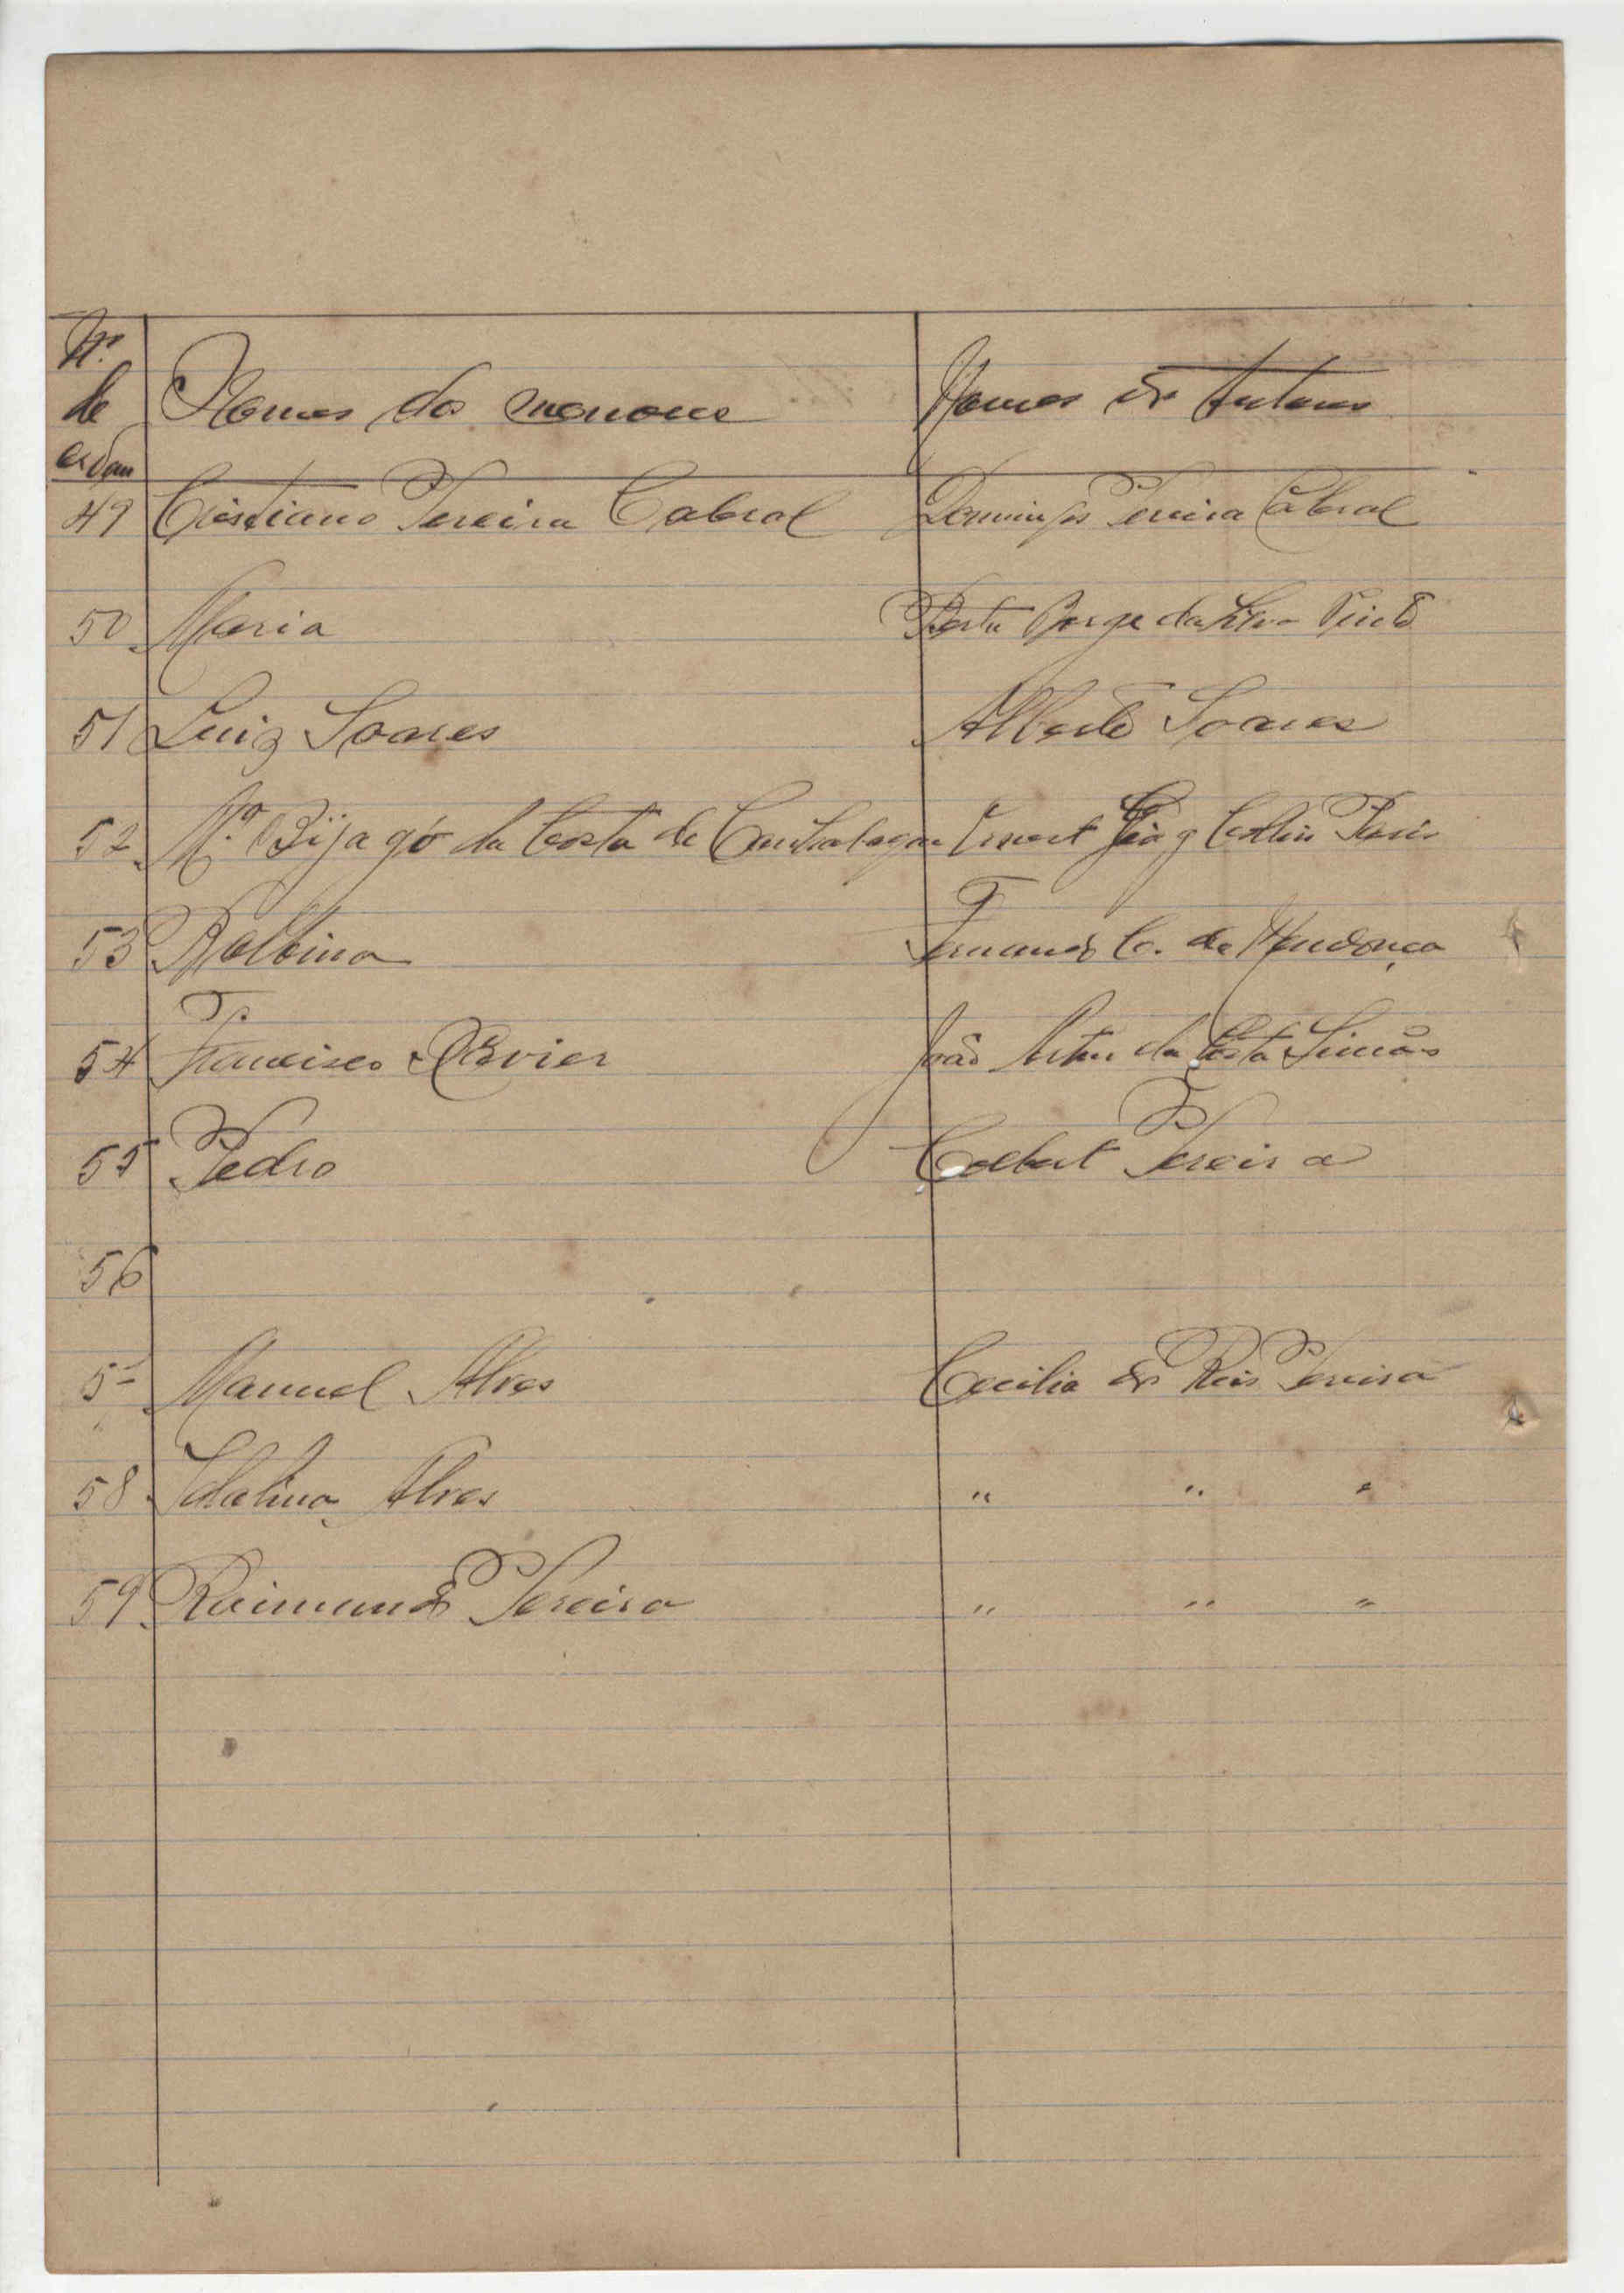 Nº
de Nomes dos menores Nomes dos tutores
ordem
49 Cristiano Pereira Cabral Domingos Pereira Cabral
50 Maria Borge da Silva Pinto
51 Luiz Soares Alberto Soares
52 Mº Bijagó da Costa de Ernest
53 Balbina Fernando C. de Mendonça
54 Francisco Xavier João Artur da Costa Simões
55 Pedro Colbert Pereira
56
5 Manuel Alves Cecilia dos Reis Pereira
58 Idalina Alves " " "
59 Raimundo Pereira " " "